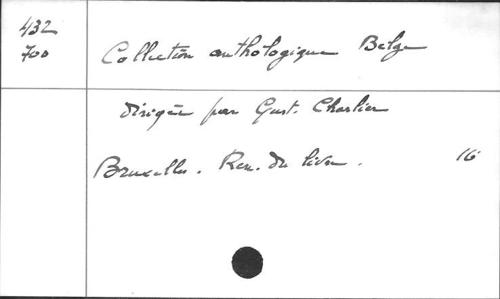 432
700
Collection anthologique Belge
dirigée par Gust. Charlier
Bruxelles. Ren. du livre. 16